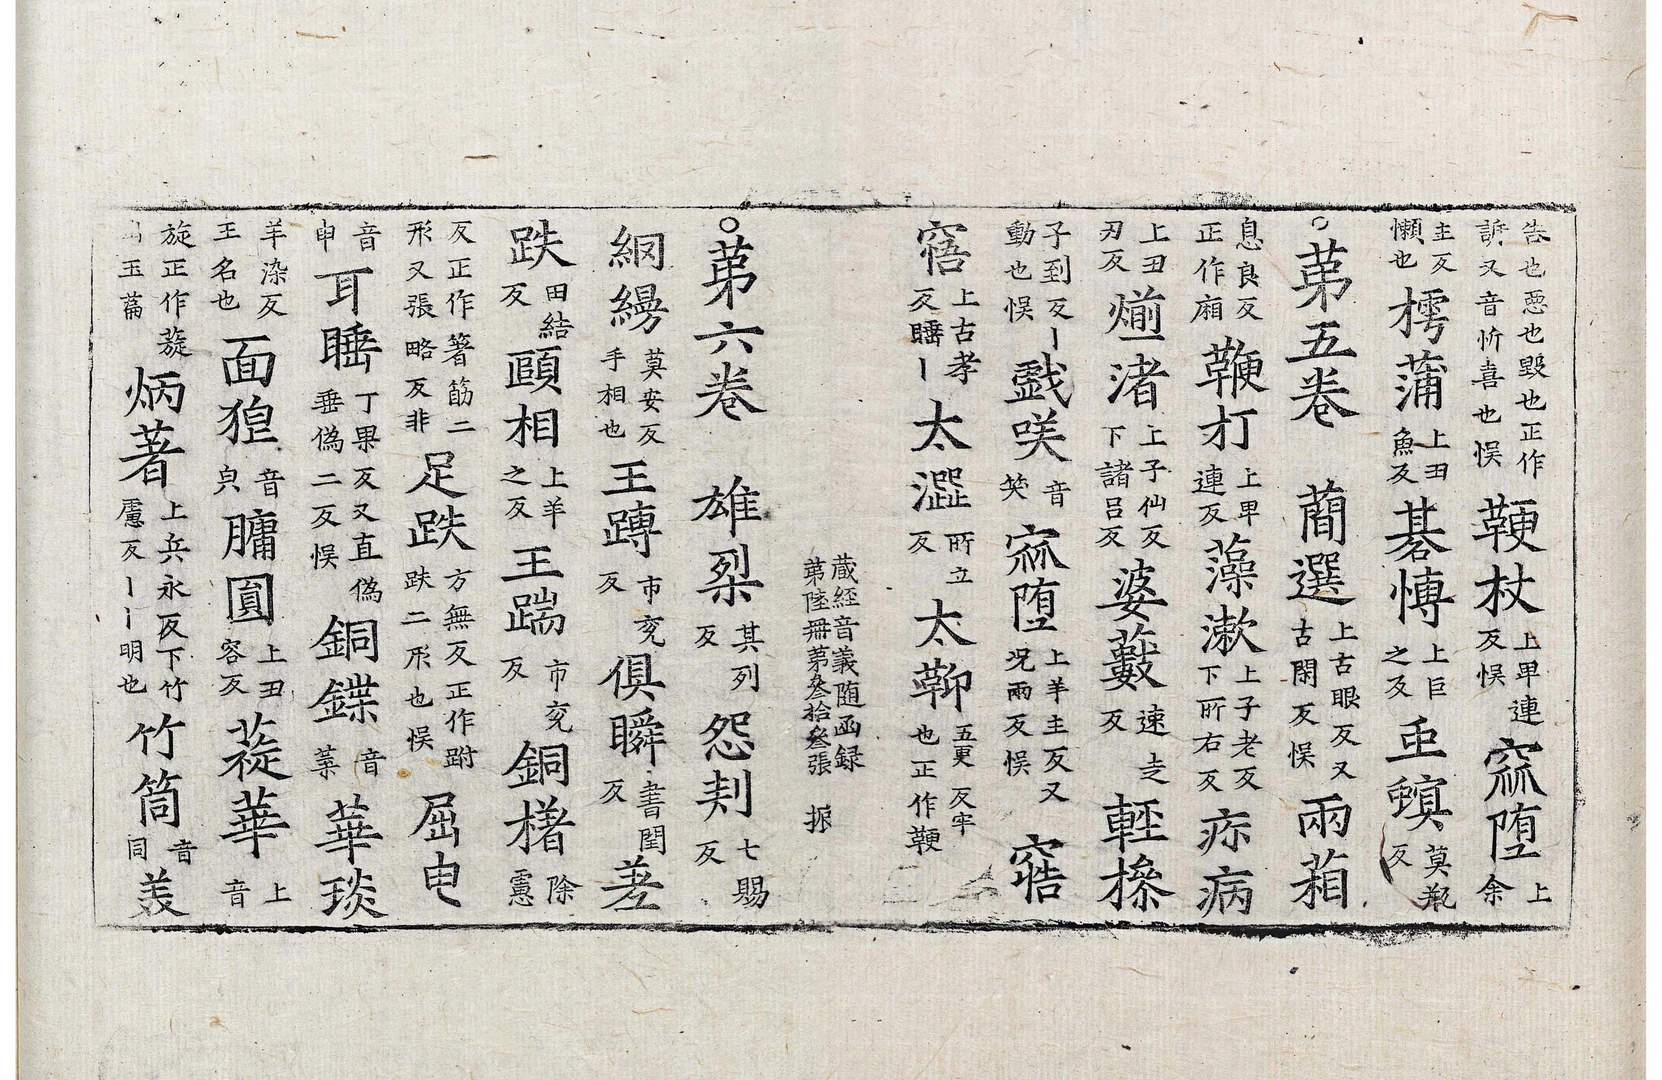 告也惡也毀也正作諕又音忻喜也悞鞕杖上卑連反悞窳堕上余
主反懶也樗蒲上丑魚反碁愽上巨之反䖟螟莫瓶反
○第五卷　蕳選上古眼反又古閑反悞兩葙
息良反正作廂鞭打上卑連反藻漱上子老反下所右反疢病
上丑刃反煎渚上子仙反下諸呂反婆藪速走反輕搽
子到反丨動也悞戯咲音笑窳堕上羊主反又况兩反悞窖
窹上古孝反睡丨太澀所立反太鞕五更反牢也正作鞕
藏經音義随函録第陸冊第叄拾叄張　振
○第六卷　雄㮚其列反怨刾七賜反
網縵莫安反手相也王蹲市兖反俱瞬書閏反差
跌田結反頤相上羊之反王踹市兖反銅櫡除慮
反正作箸筯二形又張略反非足趺方無反正作跗趺二形也悞屈申
音申耳睡丁果反又直偽垂偽二反悞銅鍱音葉華琰
羊染反王名也面㹰音㒵牅圓上丑容反蓰華上音
旋正作蔙玉篇炳著上兵永反下竹慮反丨丨明也竹筒音同羙